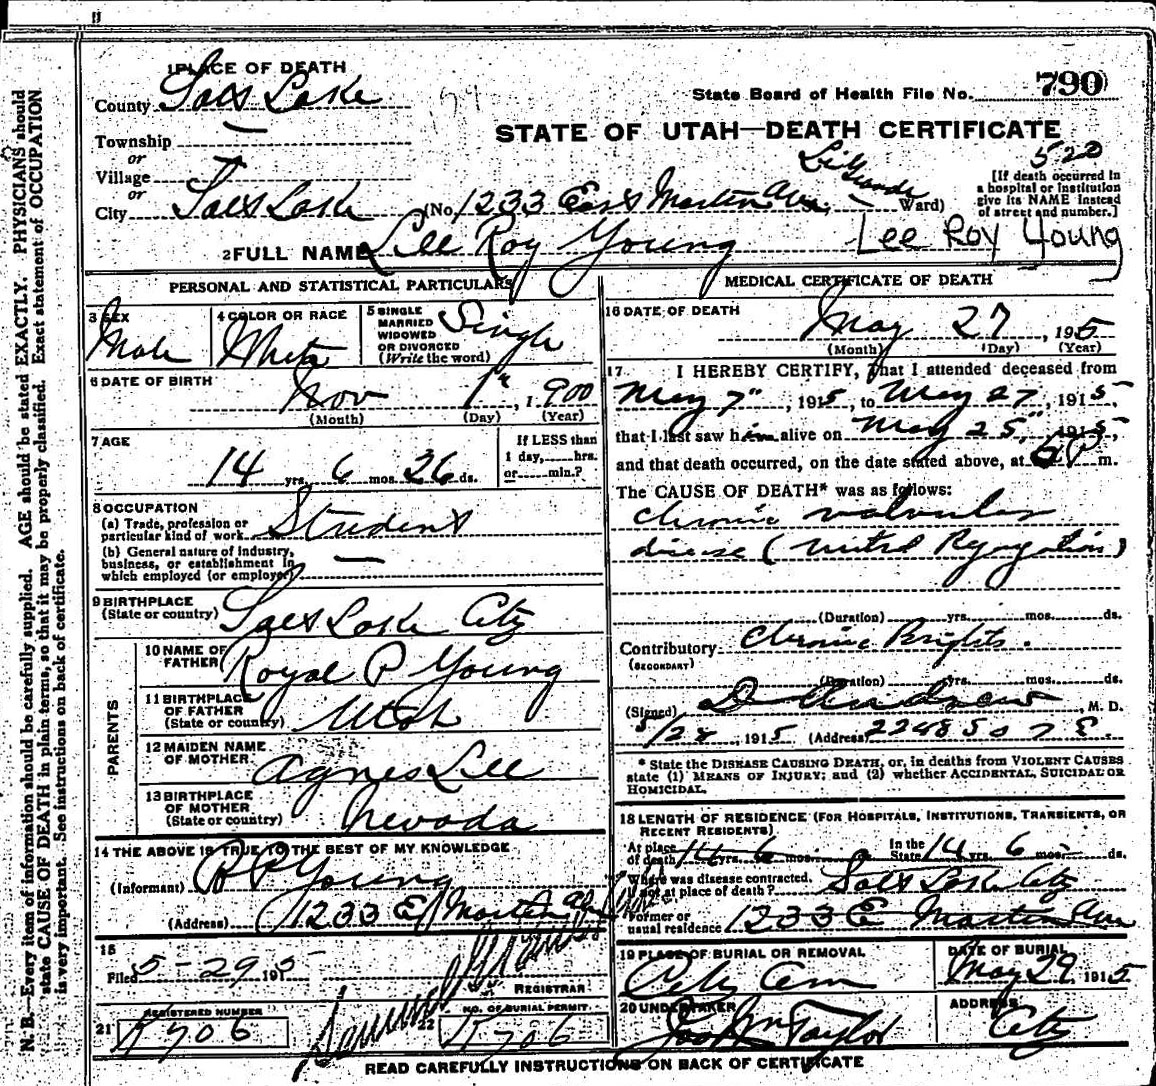 N. B.—Every item of information should be carefully supplied. AGE should be stated EXACTLY. PHYSICIANS should
state CAUSE OF DEATH in plain terms, so that it may be properly classified. Exact statement of OCCUPATION
is very important. See instructions on back of certificate.
1 PLACE OF DEATH
County Salt Lake
State Board of Health File No. 790
Township —
or
STATE OF UTAH—DEATH CERTIFICATE
Village
or
520
City Salt Lake (No. 1233 East Ave, — Ward)
[If death occurred in
a hospital or institution
give its NAME instead
of street and number.]
2 FULL NAME Lee Roy Young
Lee Roy Young
PERSONAL AND STATISTICAL PARTICULARS
3 SEX
Male
4 COLOR OR RACE
White
5 SINGLE
MARRIED
WIDOWED
OR DIVORCED
(Write the word)
Single
6 DATE OF BIRTH
Nov 1st, 1900
(Month) (Day) (Year)
7 AGE
14 yrs. 6 mos. 26 ds.
If LESS than
1 day,......hrs.
or......min.?
8 OCCUPATION
(a) Trade, profession or
particular kind of work Student
(b) General nature of industry,
business, or establishment in
which employed (or employer) —
9 BIRTHPLACE
(State or country) Salt Lake City
PARENTS
10 NAME OF
FATHER Royal P Young
11 BIRTHPLACE
OF FATHER
(State or country) Utah
12 MAIDEN NAME
OF MOTHER Agnes Lee
13 BIRTHPLACE
OF MOTHER
(State or country) Nevada
14 THE ABOVE IS TRUE TO THE BEST OF MY KNOWLEDGE
(Informant) R P Young
(Address) 1233 E Ave
15
Filed 5-29 1915
REGISTRAR
21 REGISTERED NUMBER
K706
22 NO. OF BURIAL PERMIT
K706
MEDICAL CERTIFICATE OF DEATH
16 DATE OF DEATH
May 27, 1915
(Month) (Day) (Year)
17 I HEREBY CERTIFY, That I attended deceased from
May 7", 1915, to May 27, 1915,
that I last saw him alive on May 25", 1915,
and that death occurred, on the date stated above, at P m.
The CAUSE OF DEATH* was as follows:
Chronic valvular
disease (Mitral Regurgitation)
(Duration) yrs. mos. ds.
Contributory Chronic Brights.
(SECONDARY)
(Duration) yrs. mos. ds.
(Signed) M. D.
5/28, 1915 (Address) 2248 So 7 E.
* State the DISEASE CAUSING DEATH, or, in deaths from VIOLENT CAUSES
state (1) MEANS OF INJURY; and (2) whether ACCIDENTAL, SUICIDAL OR
HOMICIDAL.
18 LENGTH OF RESIDENCE (FOR HOSPITALS, INSTITUTIONS, TRANSIENTS, OR
RECENT RESIDENTS)
At place
of death 14 yrs. 6 mos. ds.
In the
State 14 yrs. 6 mos. ds.
Where was disease contracted.
if not at place of death? Salt Lake City
Former or
usual residence 1233 E Ave
19 PLACE OF BURIAL OR REMOVAL
City Cem
DATE OF BURIAL
May 29 1915
20 UNDERTAKER
Jos Wm Taylor
ADDRESS
City
READ CAREFULLY INSTRUCTIONS ON BACK OF CERTIFICATE